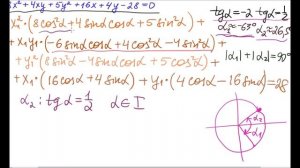 8x²+4xy+5y²+16x+4y-28=0
x₁²·(8cos²α+4sinα cosα+5sin²α)+
+x₁y₁·(-6sinα cosα+4cos²α-4sin²α)+
+y₁²(8sin²α-4sinα cosα+5cos²α)+
+x₁·(16cosα+4sinα)+y₁·(4cosα-16sinα)=28
α₂: tgα=1/2 α∈I
tgα=-2 tgα=1/2
α₁≈-63° α₂≈26,5
|α₁|+|α₂|=90°
α₂
α₁